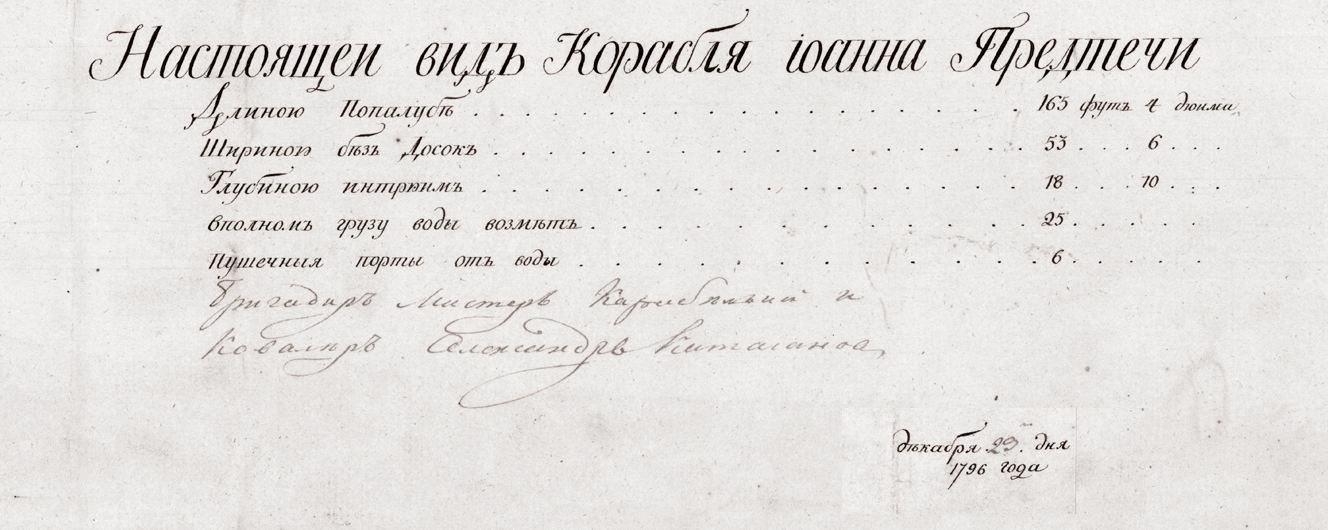 Настоящеи видъ Корабля иоанна Предтечи
Длиною Попалубѣ . . . . . . . . . . . . . . . 165 футъ 4 дюима
Шириною бѣзъ Досокъ . . . . . . . . . . . . . . . 53 . . . 6 . . .
Глубиною интрюимъ . . . . . . . . . . . . . . . 18 . . . 10 . . .
вполномъ грузу воды возмѣтъ . . . . . . . . . . . . 25 . . . . . .
Пушечныя порты отъ воды . . . . . . . . . . . . 6 . . . . . .
Бригадиръ Мастеръ Карабельнай и
Ковалиръ Александръ Катасановъ
дѣкабря 23. дня
1796 года